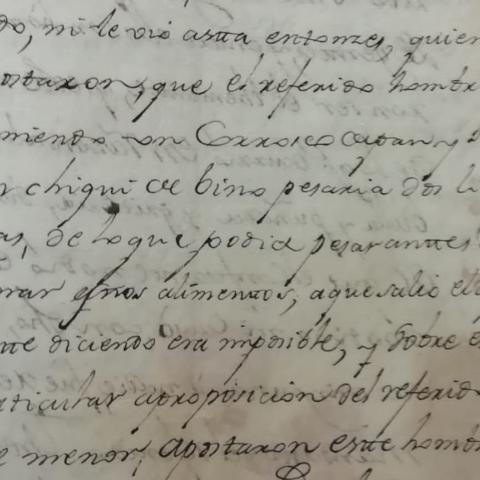 do, ni le vio asta entonzes, quien
ostaxon, que el referido hombr
miendo un
r chiqui de bino pesaria dos li
as, de lo que podia pesar antes
mar esos alimentos, a que salio el
te diciendo era imposible, y sobre e
articular a proposicion del referido
e menor, apostaxon este homb